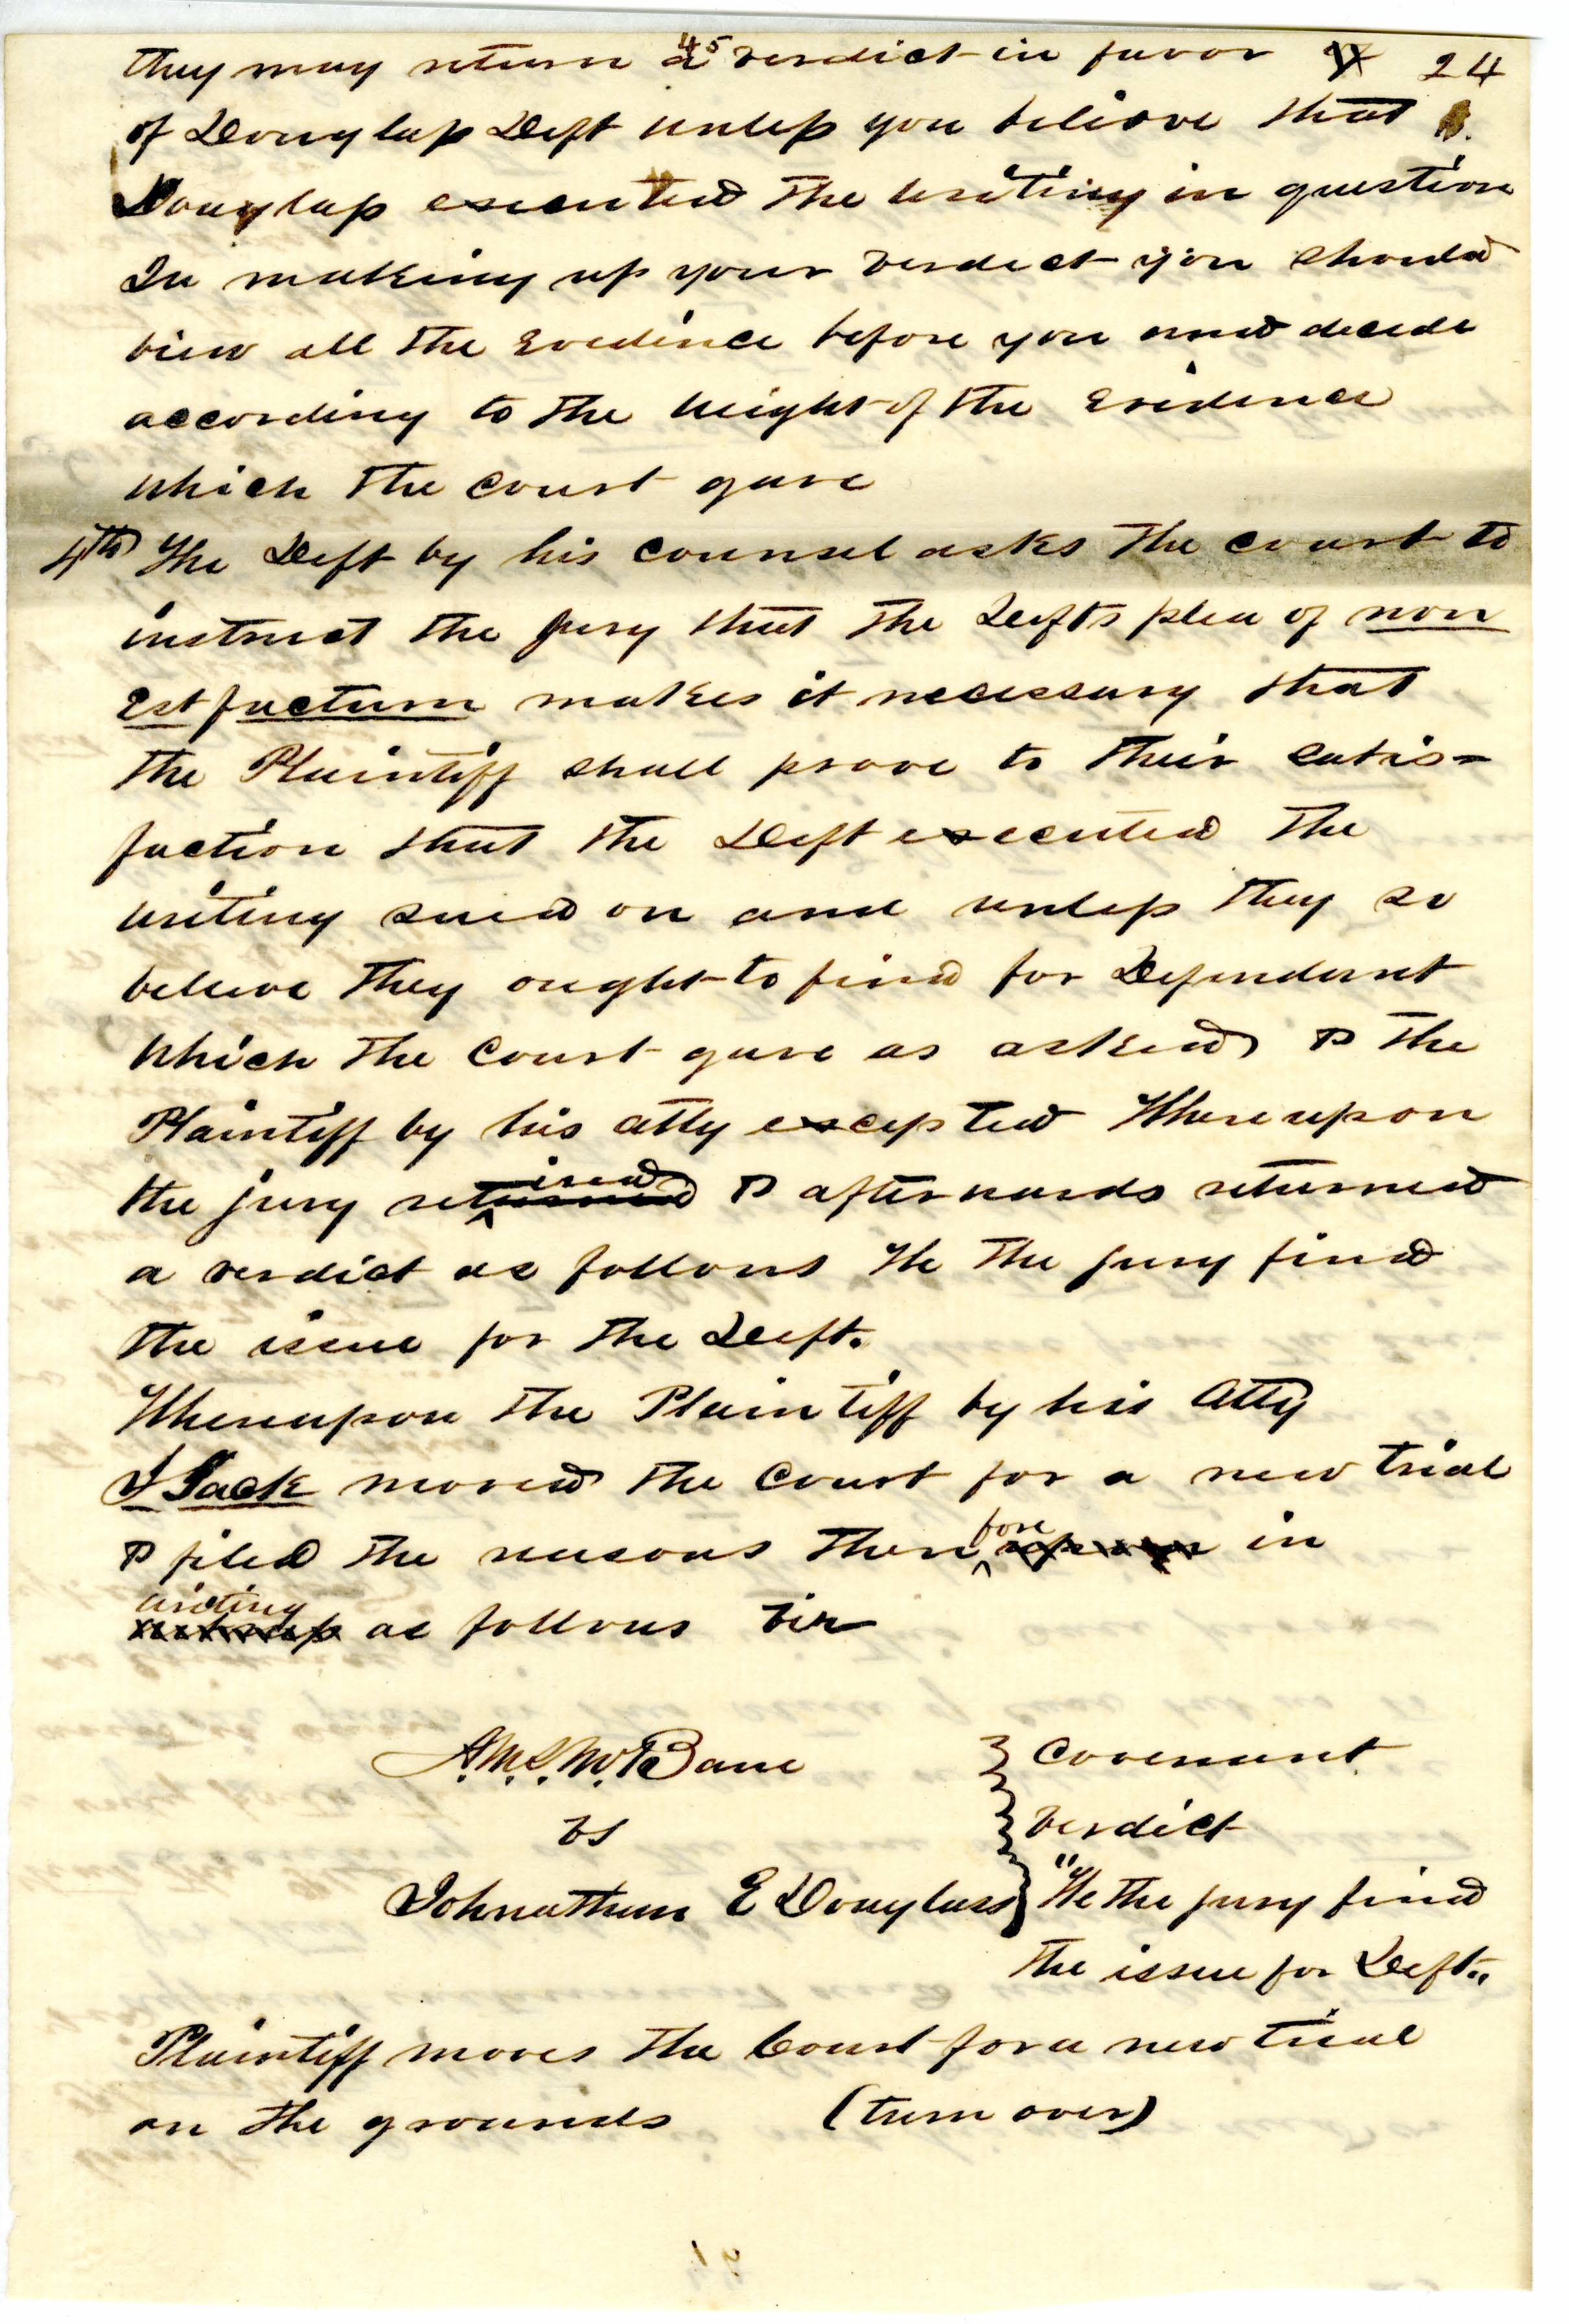 they may return a verdict in favor 24
45
of Douglass Deft unless you believe that
Douglass executed the writing in question
In making up your verdict you should
view all the Evedince before you and decide
according to the weight of the Evidence
which the court gave
4th The Deft by his counsel asks the court to
instruct the jury that the Defts plea of non
Est factum makes it necessary that
the Plaintiff shall prove to their satis=
faction that the Deft executed the
writing sued on and unless they so
believe they ought to find for Defendant
which the court gave as asked & the
Plaintiff by his atty excepted Whereupon
the jury retired & afterwards returned
a verdict as follows We the jury find
the issue for the Deft.
Whereupon the Plaintiff by his Atty
Jack moved the Court for a new trial
& filed the reasons therefore in
writing as follows viz
A.M.S. McBane } Covenant
vs } Verdict
Johnathan E Douglass } "We the jury find
the issue for Deft."
Plaintiff moves the Court for a new trial
on the grounds (turn over)